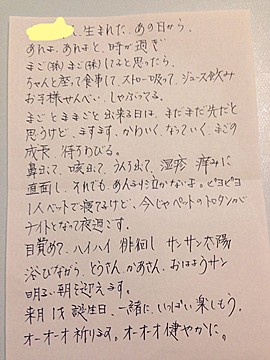 ん、生まれた、あの日から、
あれよ、あれよと、時が過ぎ
まご(孫) まご(孫)してると思ったら、
ちゃんと座って食事して、ストロー吸って、ジュース飲み
お子様せんべい、しゃぶってる。
まごとままごと出来る日は、まだまだ先だと
思うけど、ますます、かわいくなっていく、まごの
成長、待ちわびる。
鼻出て、咳出て、うんち出て、湿疹 痛みに
直面し、それでも、あんまり泣かないよ。ピヨピヨ
1人ベットで寝てるけど、今じゃペットの
ナイトとなって夜過ごす。
目覚めて、ハイハイ 徘徊し サンサン太陽
浴びながら、とうさん、かあさん、おはようサン
明るい朝を迎えます。
来月1才誕生日、一緒に、いっぱい楽しもう。
オーオーオ祈ります。オーオーオ健やかに。